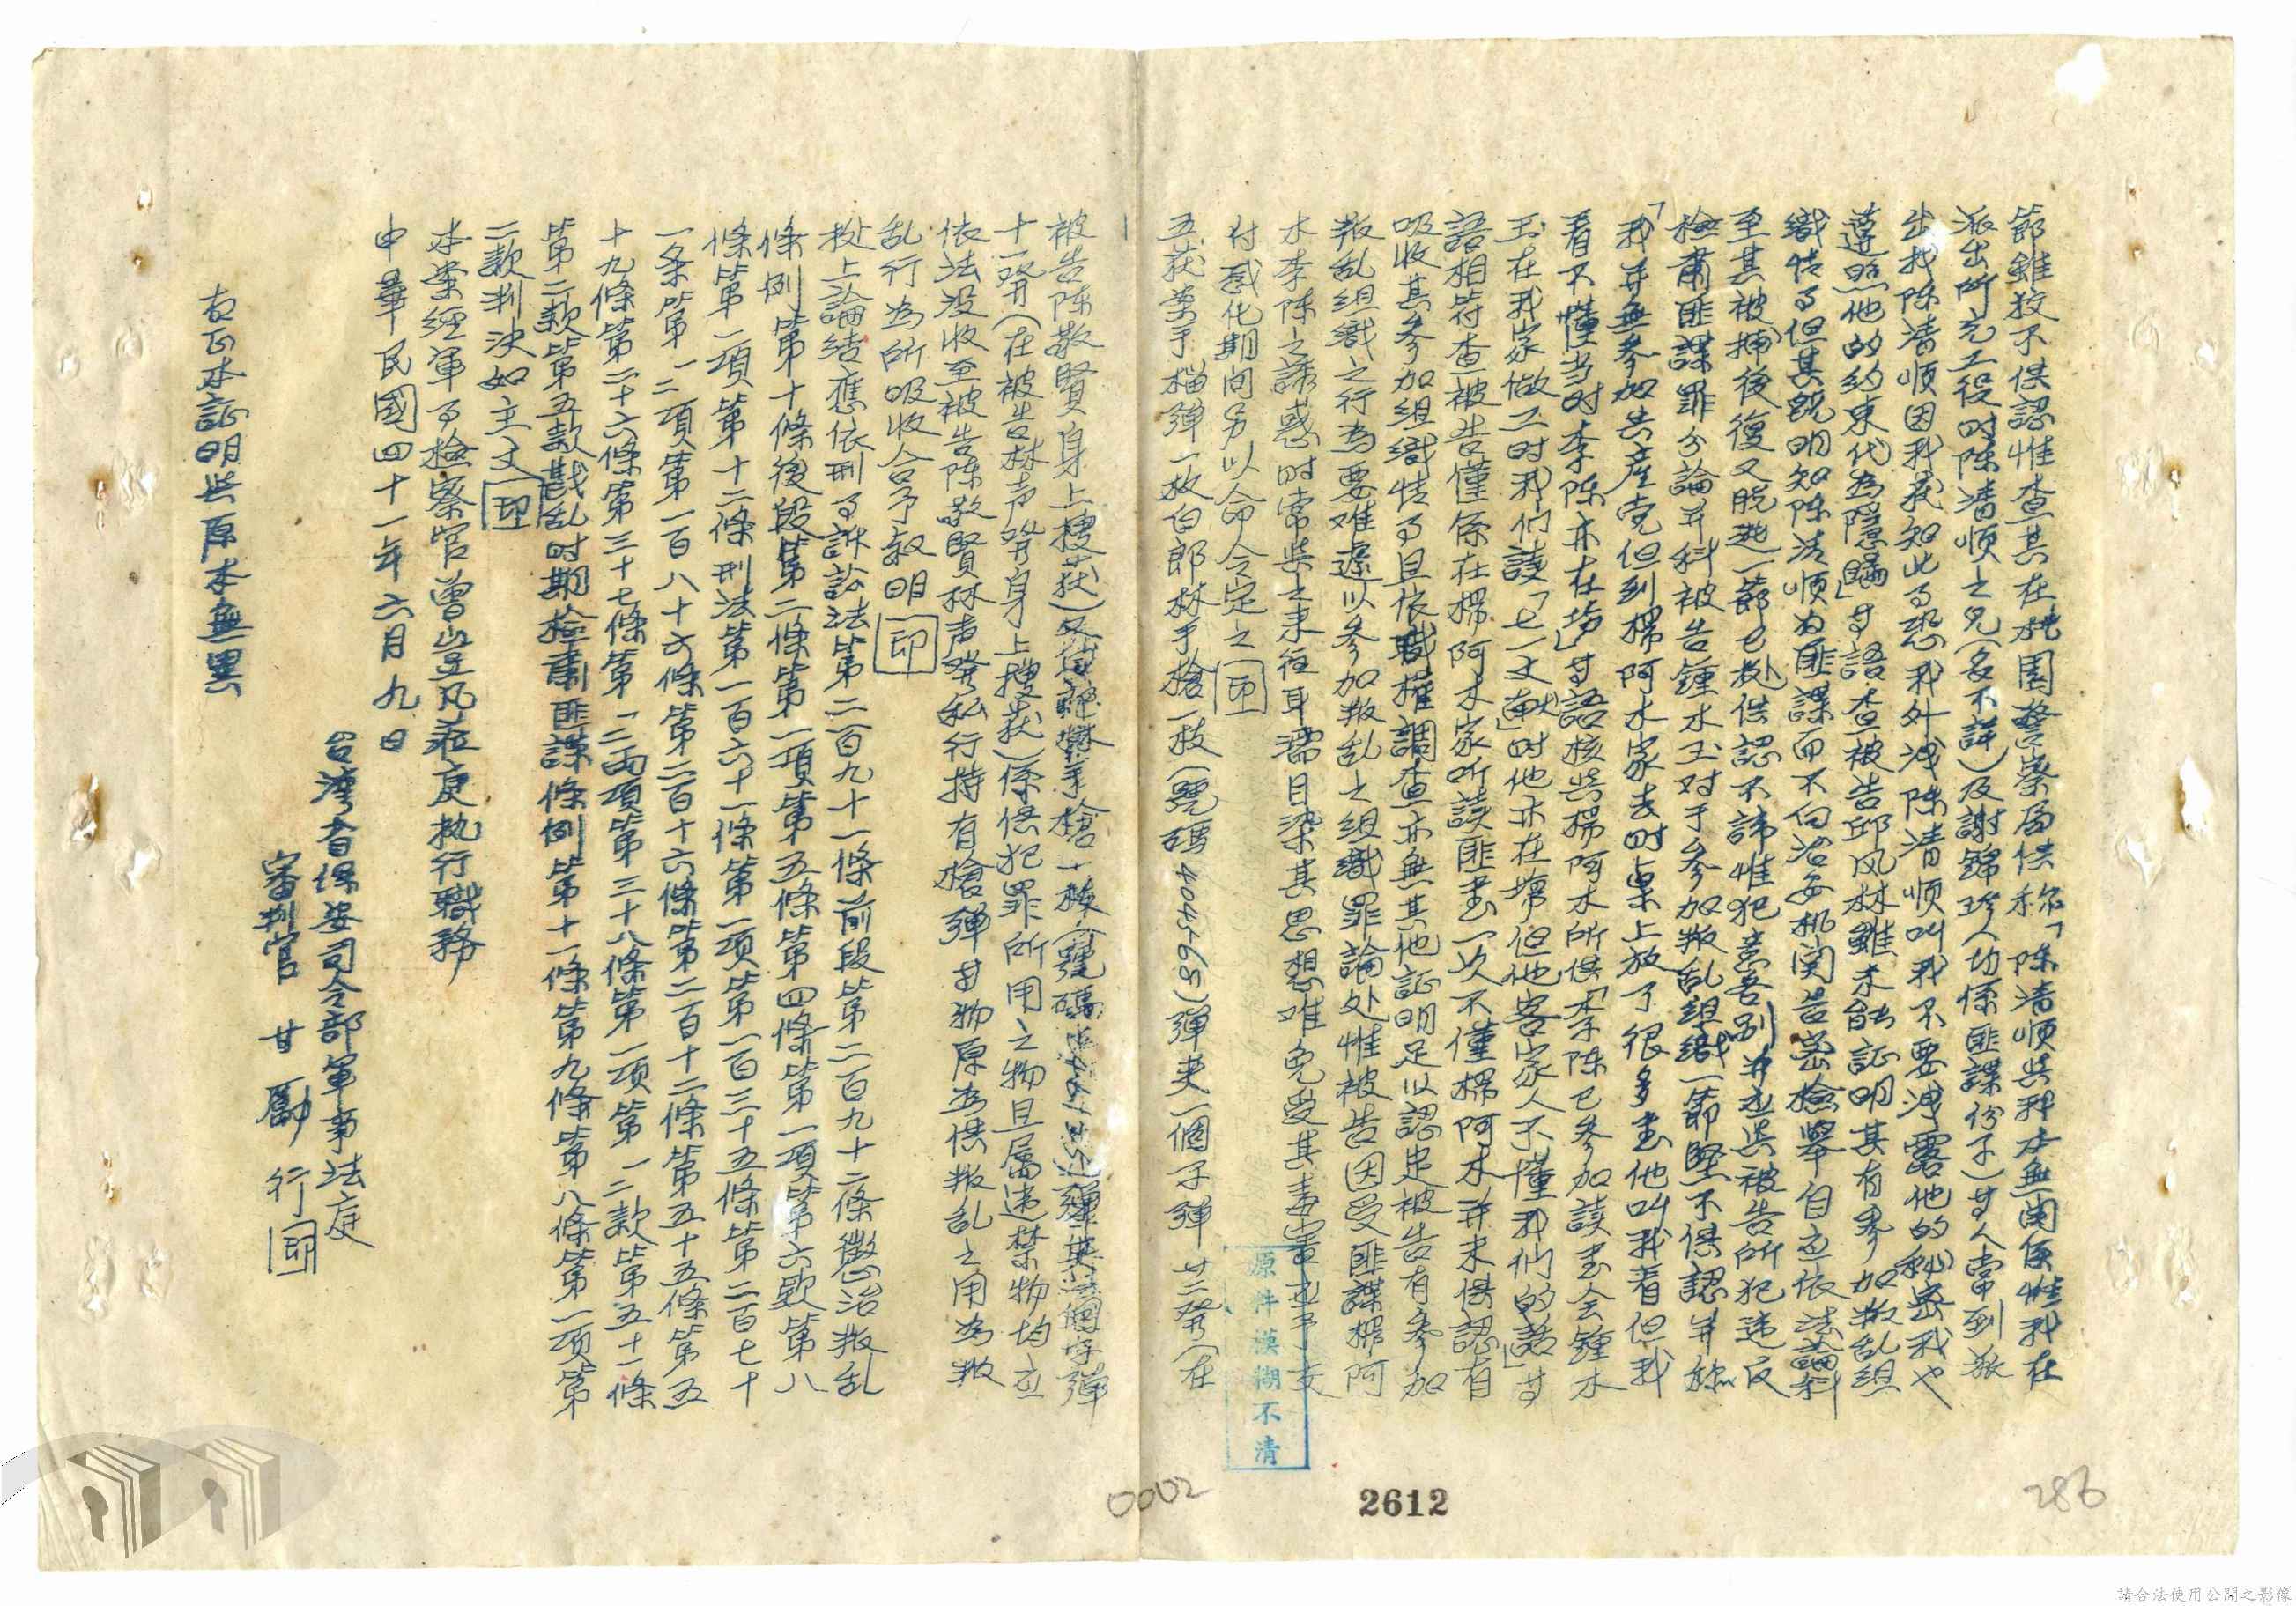 節雖狡不供認惟查其在桃園警察局供称「陳清順與我本無関係惟我在
派出所充工役时陳清順之兄(名不詳)及謝錦珍人均係匪諜份子)等人常到派
出找陳清順因我最知此事恐我外洩陳清順叫我不要洩露他的秘密我也
遵照他的約束代為隱瞞」等語查被告邱风林雖未能証明其有參加叛乱組
織情事但其既明知陳清順为匪諜而不向治安机関告密檢舉自应依法論科
至其被捕後復又脱逃一節已据供認不諱惟犯意各別并应與被告所犯违反
檢肅匪諜罪分論并科被告鍾水玉对于參加叛乱組織一節堅不供認并称
「我并無參加共產党但到楊阿木家去时桌上放了很多書他叫我看但我
看不懂当时李陳亦在塲」等語核與楊阿木所供「李陳已參加讀書会鍾水
玉在我家做工时我们讀「七一文献」时他亦在塲但他客家人不懂我们的話」等
語相符查被告僅係在楊阿木家听讀匪書一次不僅楊阿木并未供認有
吸收其參加組織情事且依職權調查亦無其他証明足以認定被告有參加
叛乱組織之行為要难遽以參加叛乱之組織罪論处惟被告因受匪諜楊阿
木李陳之誘惑时常與之来往耳濡目染其思想难免受其毒害应予交
付感化期间另以命令定之 印
五获案手榴彈一枚白郎林手槍一枝(號碼400459号)彈夾一個子彈廿二發(在
被告陳敬賢身上搜获)
十一發(在被告林声發身上搜获)係供犯罪所用之物且屬违禁物均应
依法没收至被告陳敬賢林声發私行持有槍彈等物原為供叛乱之用為叛
乱行為所吸收合予敘明 印
据上論结應依刑事訴訟法第二百九十一條前段第二百九十二條懲治叛乱
條例第十條後段第二條第一項第五條第四條第一項第六款第八
條第一項第十二條刑法第一百六十一條第一項第一百三十五條第二百七十
一条第一二項第一百八十六條第二百十六條第二百十二條第五十五條第五
十九條第二十六條第三十七條第一二两項第三十八條第一項第一二款第五十一條
第二款第五款戡乱时期檢肅匪諜條例第十一條第九條第八條第一項第
二款判决如主文 印
本案經軍事檢察官曾豈凡蒞庭執行職務
中華民國四十一年六月九日
台灣省保安司令部軍事法庭
審判官 甘勵行 印
右正本証明與原本無異
原件模糊不清
0002
2612
286
請合法使用公開之影像